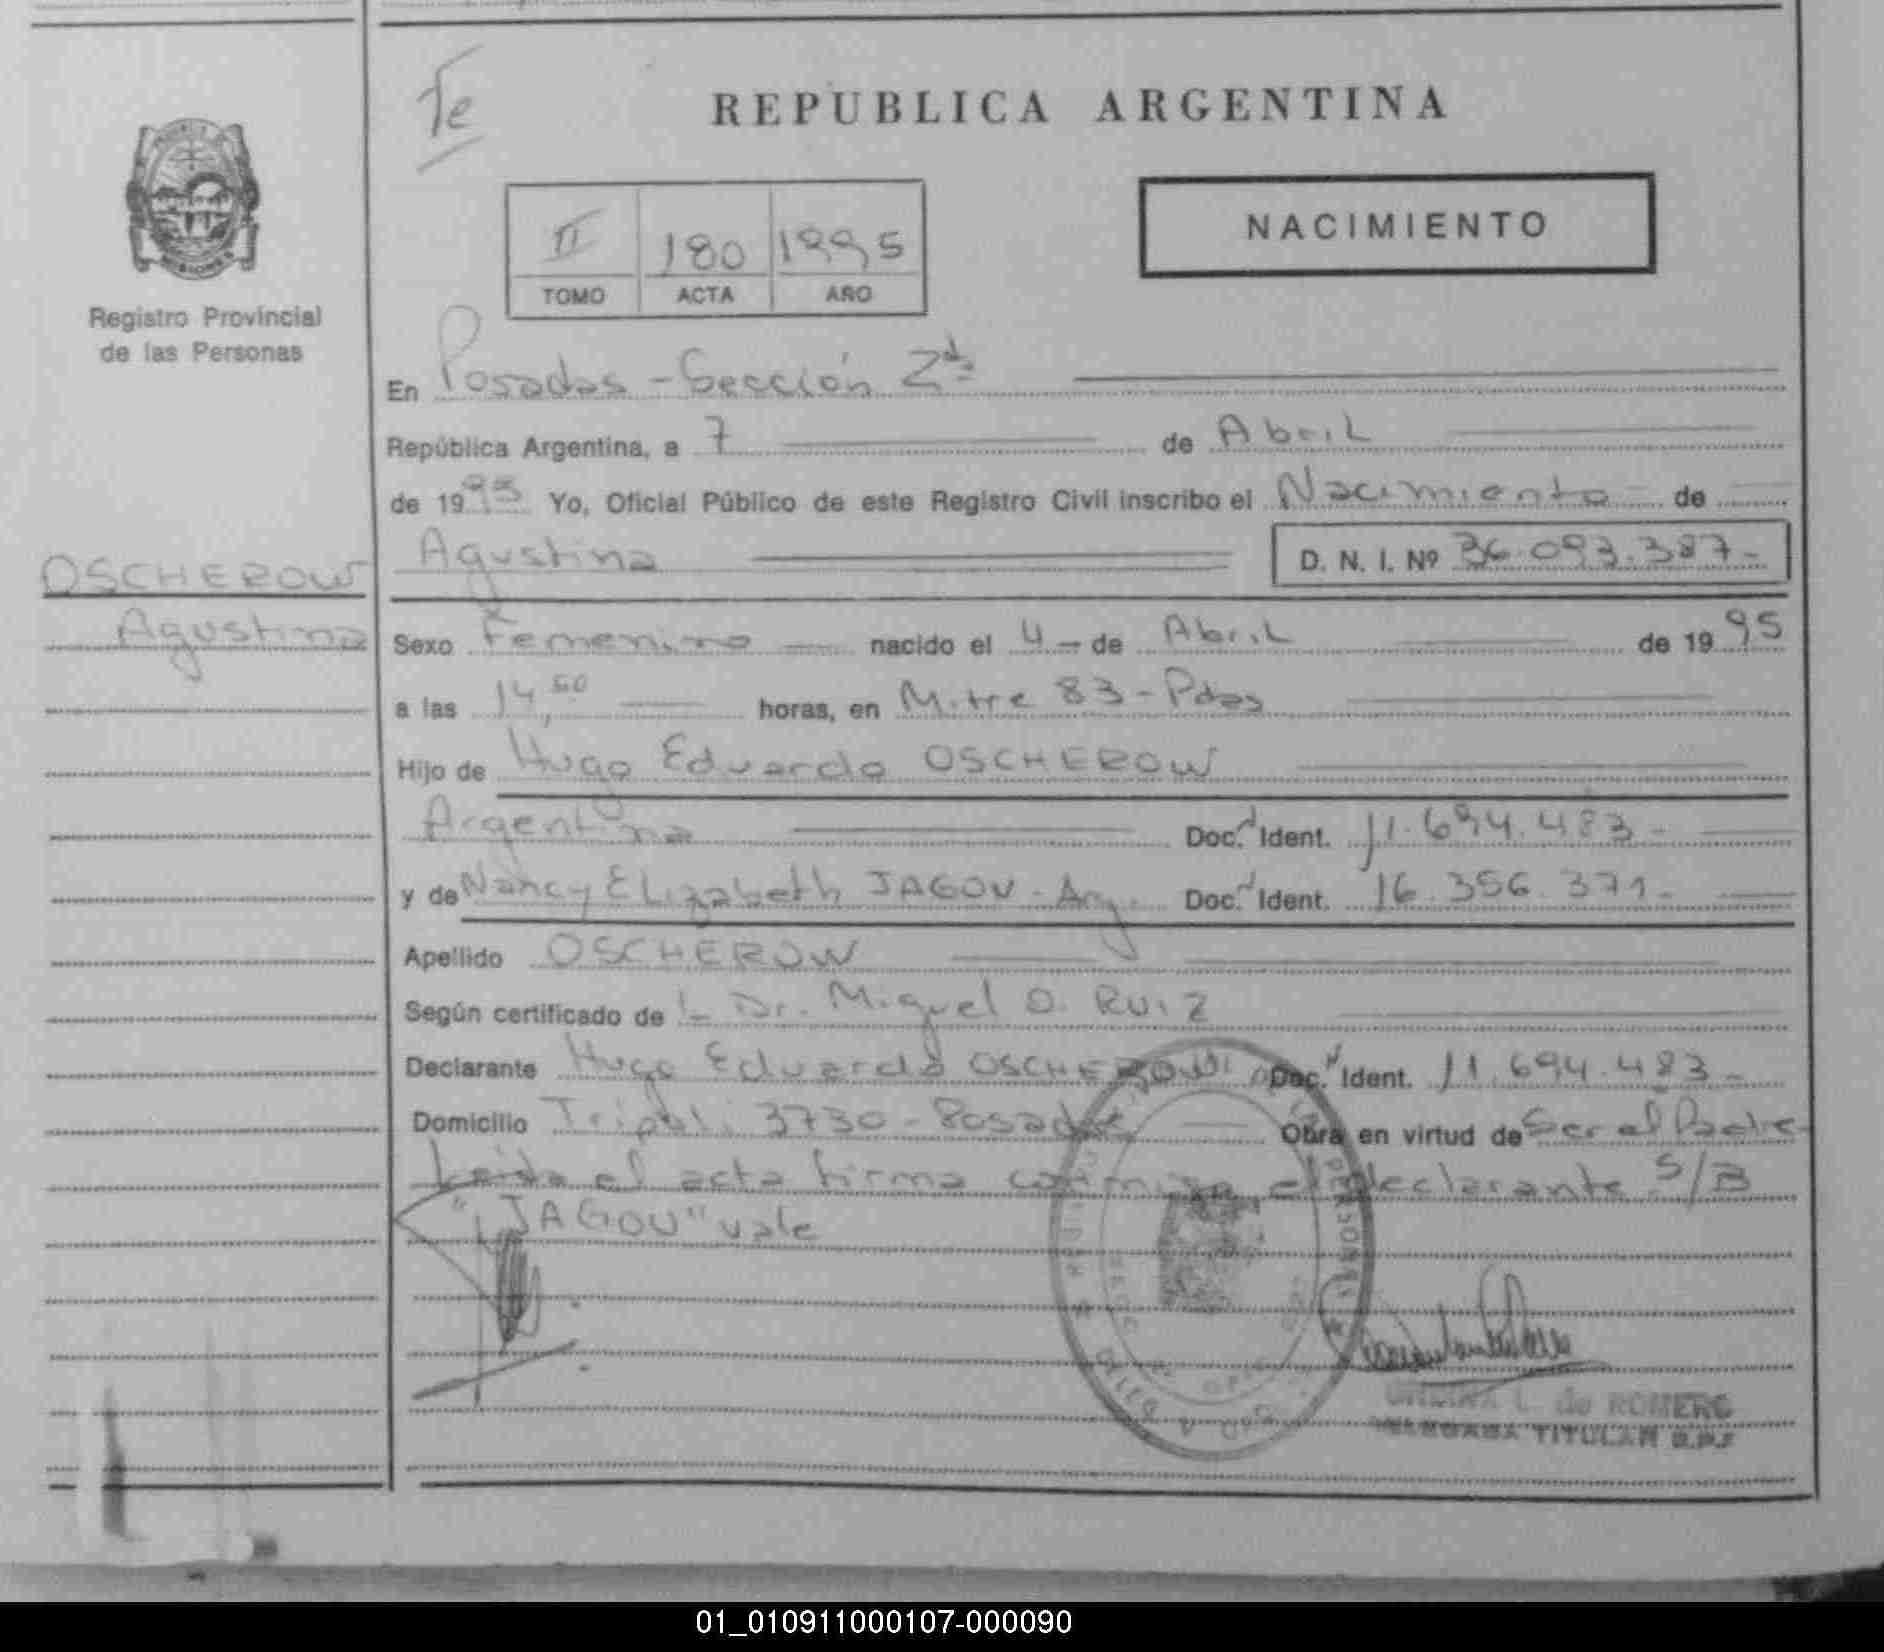 Te
REPUBLICA ARGENTINA
NACIMIENTO
II 180 1995
TOMO ACTA AÑO
MISIONES
Registro Provincial
de las Personas
En Posadas - Sección 2da
República Argentina, a 7 de Abril
de 1995 Yo, Oficial Público de este Registro Civil inscribo el Nacimiento de
Agustina D. N. I. Nº 36.093.387-
OSCHEROW
Agustina
Sexo Femenino nacido el 4 - de Abril de 1995
a las 14,50 horas, en Mitre 83 - Pdas
Hijo de Hugo Eduardo OSCHEROW
Argentina Doc. Ident. 11.694.483-
y de Nancy Elizabeth JAGOU - Arg. Doc. Ident. 16.356.371-
Apellido OSCHEROW
Según certificado de :- Dr. Miguel O. Ruiz
Declarante Hugo Eduardo OSCHEROW Doc. Ident. 11.694.483-
Domicilio Tripoli 3730 - Posadas Obra en virtud de Ser el Padre-
Leida el acta firma conmigo el declarante S/B
"JAGOU" vale
L. de ROMERO
TITULAR R.P.P
01_010911000107-000090